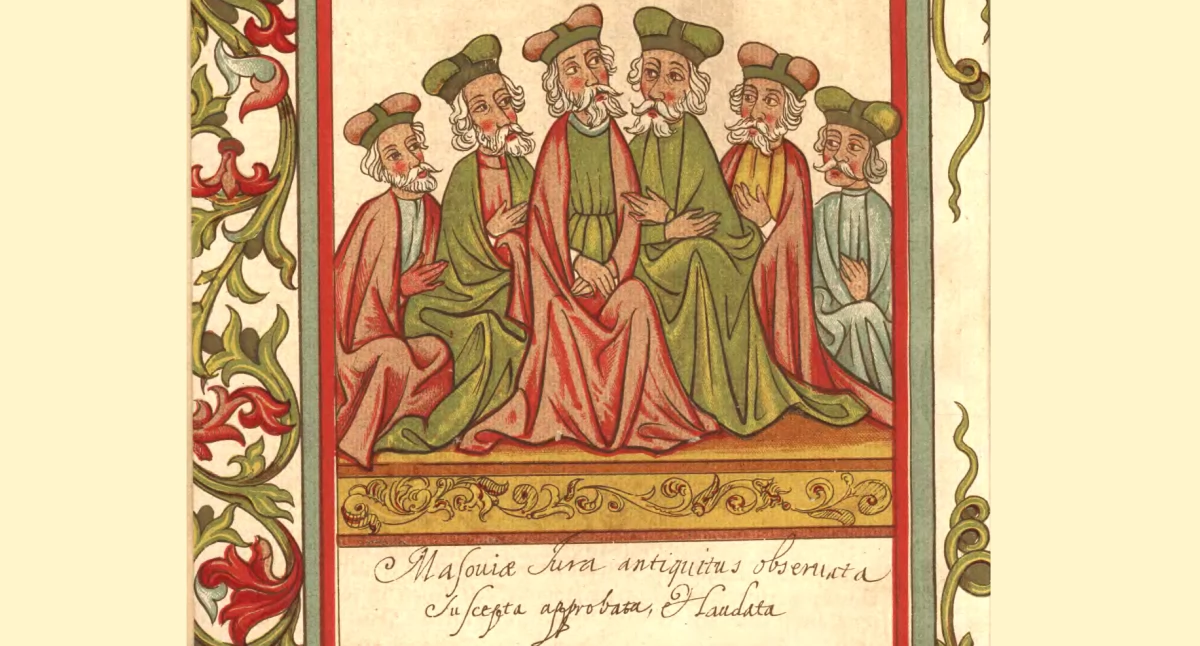 Masoviæ Jura antiquitus observata
Suscepta approbata, & laudata